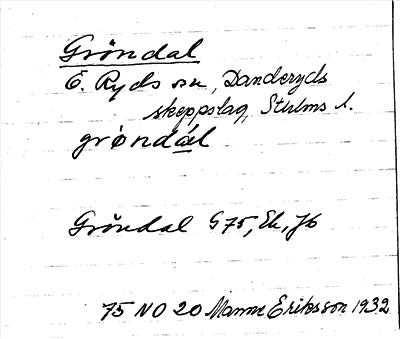 Gröndal
E. Ryds sn, Danderyds
skeppslag, Sthlms l.
grö̀ndál
Gröndal G75, Ek, Jb
75 NO 20 Manne Eriksson 1932